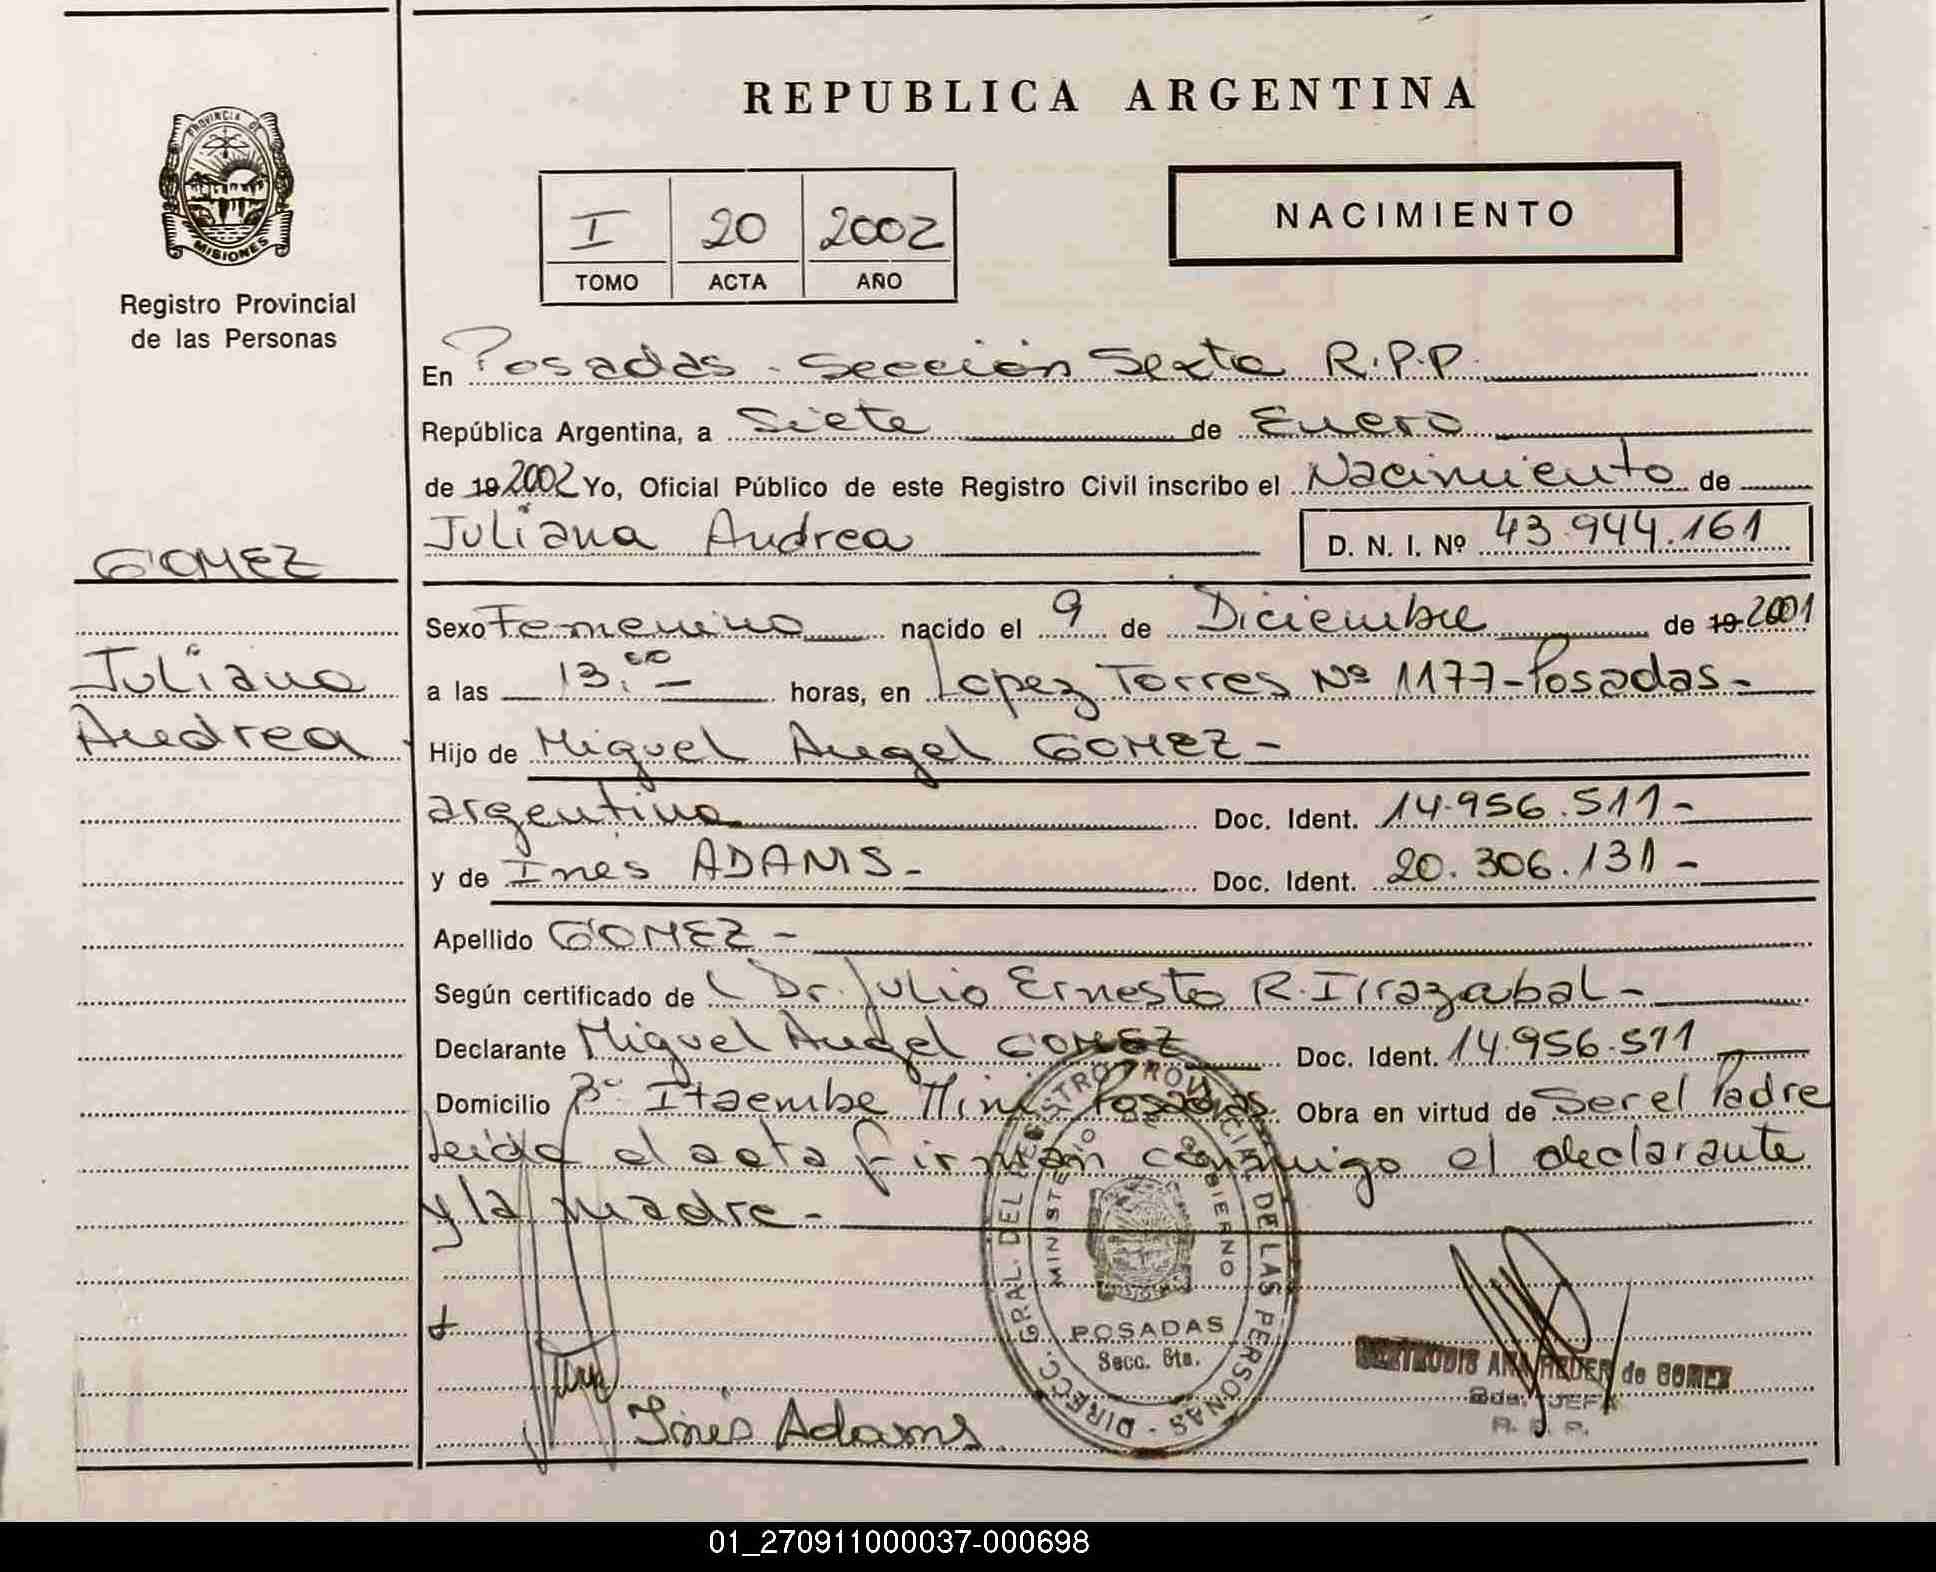 REPUBLICA ARGENTINA
PROVINCIA DE
MISIONES
Registro Provincial
de las Personas
I 20 2002
TOMO ACTA AÑO
NACIMIENTO
En Posadas - Sección Sexta R.P.P.
República Argentina, a Siete de Enero
de 19 2002 Yo, Oficial Público de este Registro Civil inscribo el Nacimiento de
Juliana Andrea D. N. I. Nº 43.944.161
GOMEZ
Juliana
Andrea
Sexo Femenino nacido el 9 de Diciembre de 19 2001
a las 13.00 - horas, en Lopez Torres Nº 1177 - Posadas -
Hijo de Miguel Angel GOMEZ -
argentino Doc. Ident. 14.956.511 -
y de Ines ADAMS - Doc. Ident. 20.306.131 -
Apellido GOMEZ -
Según certificado de Dr. Julio Ernesto R. Irrazabal -
Declarante Miguel Angel GOMEZ Doc. Ident. 14.956.511
Domicilio Bº Itaembe Mini Posadas Obra en virtud de Ser el Padre
Leida el acta firman conmigo el declarante
y la madre -
DIRECC. GRAL. DEL REGISTRO PROVINCIAL DE LAS PERSONAS -
MINISTERIO DE GOBIERNO
POSADAS
Secc. 6ta.
Inés Adams
GERTRUDIS ANA de GOMEZ
2da. JEFA
R. P. P.
01_270911000037-000698